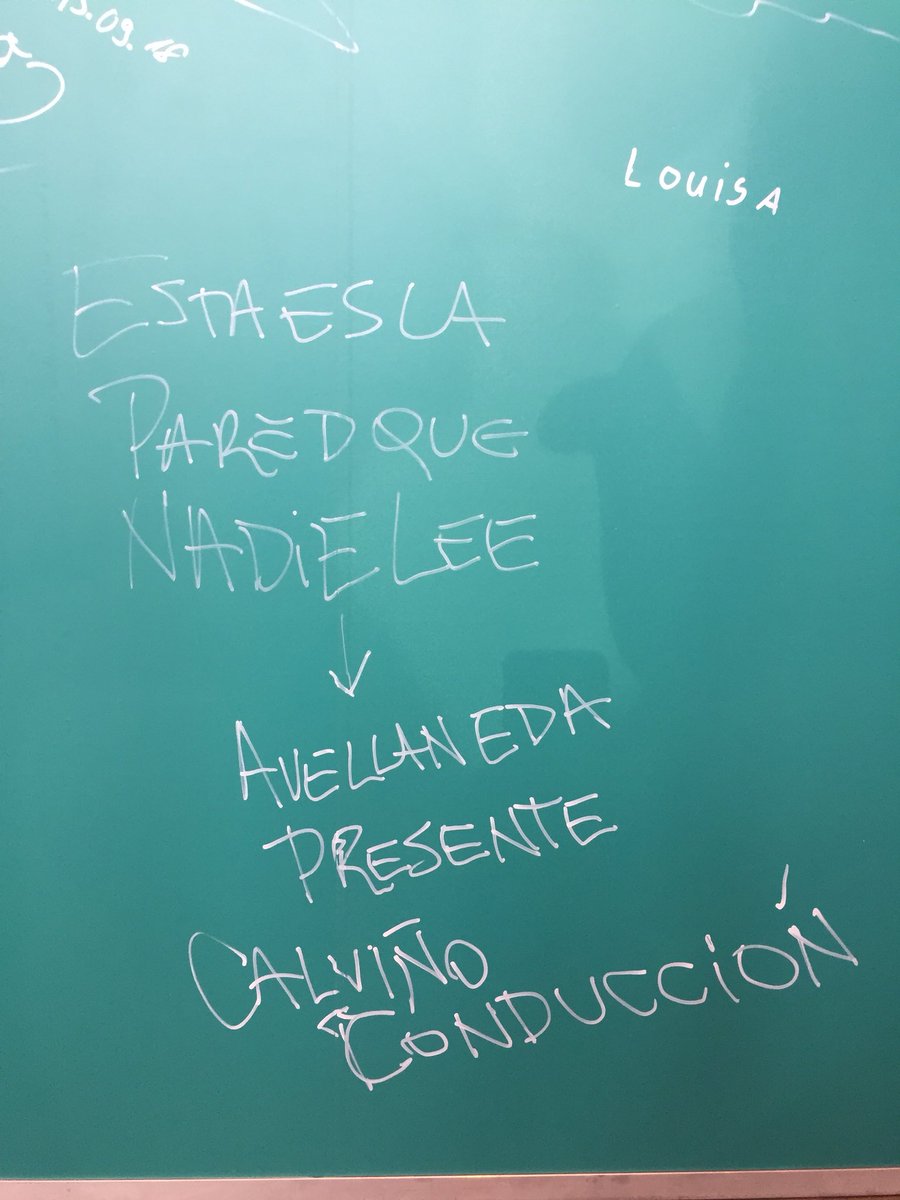 13.09.18
LOUISA
ESTA ES LA
PARED QUE
NADiE LEE
AVELLANEDA
PRESENTE
CALViÑO
CONDUCCiÓN